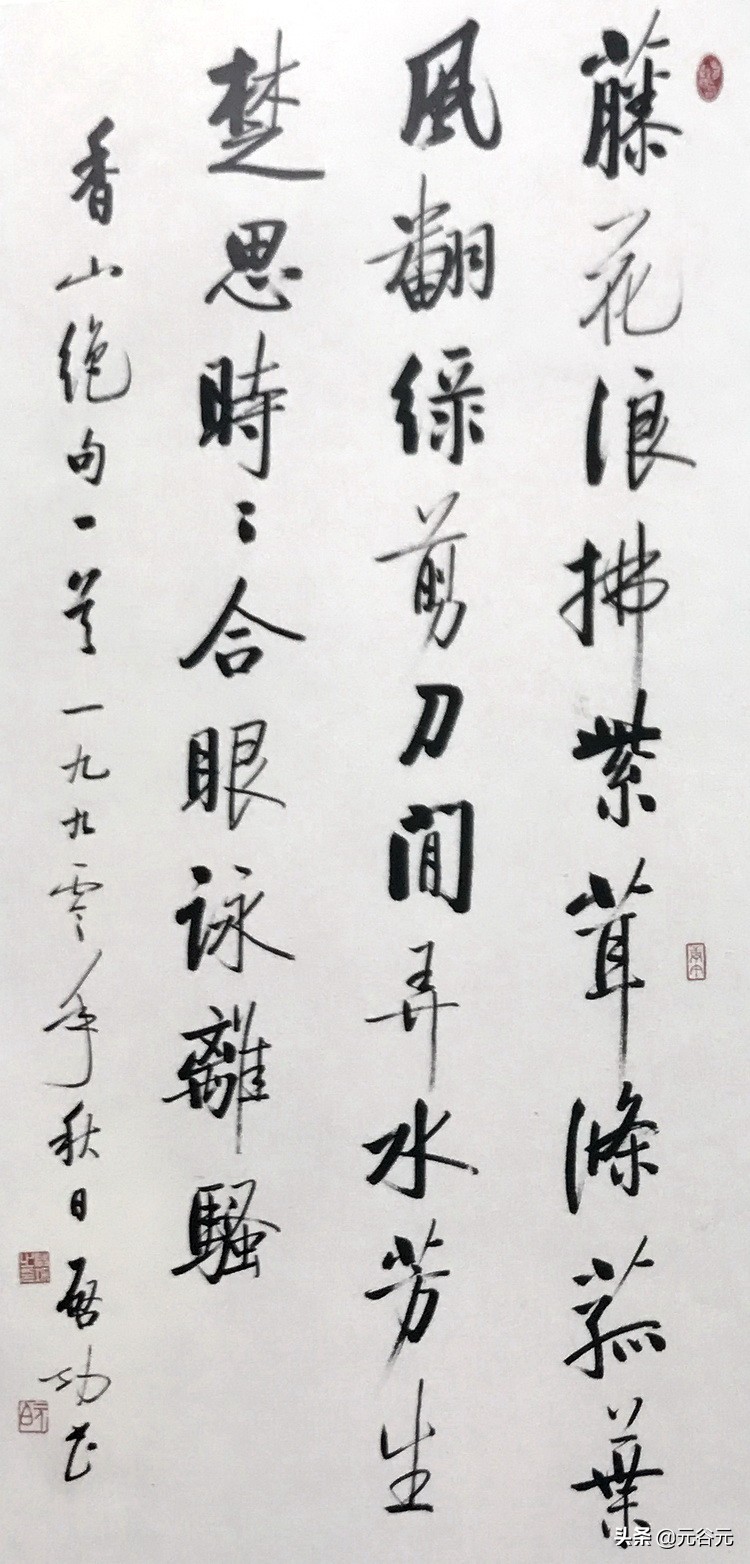 藤花浪拂紫茸條菰葉
風翻緑剪刀閒弄水芳生
楚思時〻合眼詠離騷
香山絶句一首一九九零年秋日啟功書
头条 @元谷元